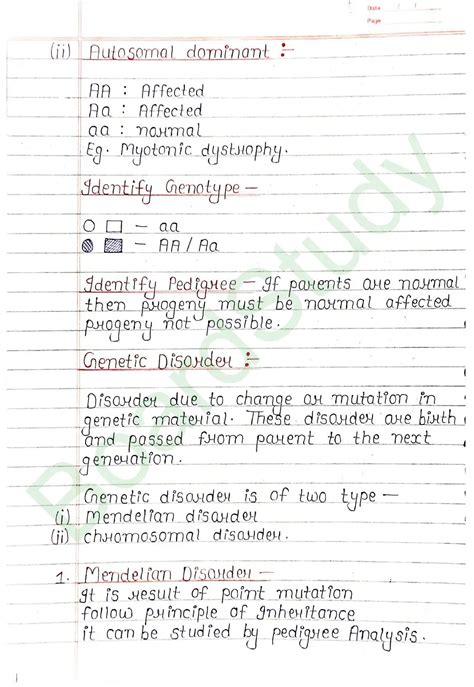 Date / /
Page
(ii) Autosomal dominant :-
AA : Affected
Aa : Affected
aa : normal
Eg. Myotonic dystrophy.
Identify Genotype —
— aa
— AA / Aa
Identify Pedigree — If parents are normal
then progeny must be normal affected
progeny not possible.
Genetic Disorder :-
Disorder due to change or mutation in
genetic material. These disorder are birth
and passed from parent to the next
generation.
Genetic disorder is of two type —
(i) Mendelian disorder
(ii) chromosomal disorder.
1. Mendelian Disorder —
It is result of point mutation
follow principle of Inheritance
it can be studied by pedigree Analysis.
BoardStudy